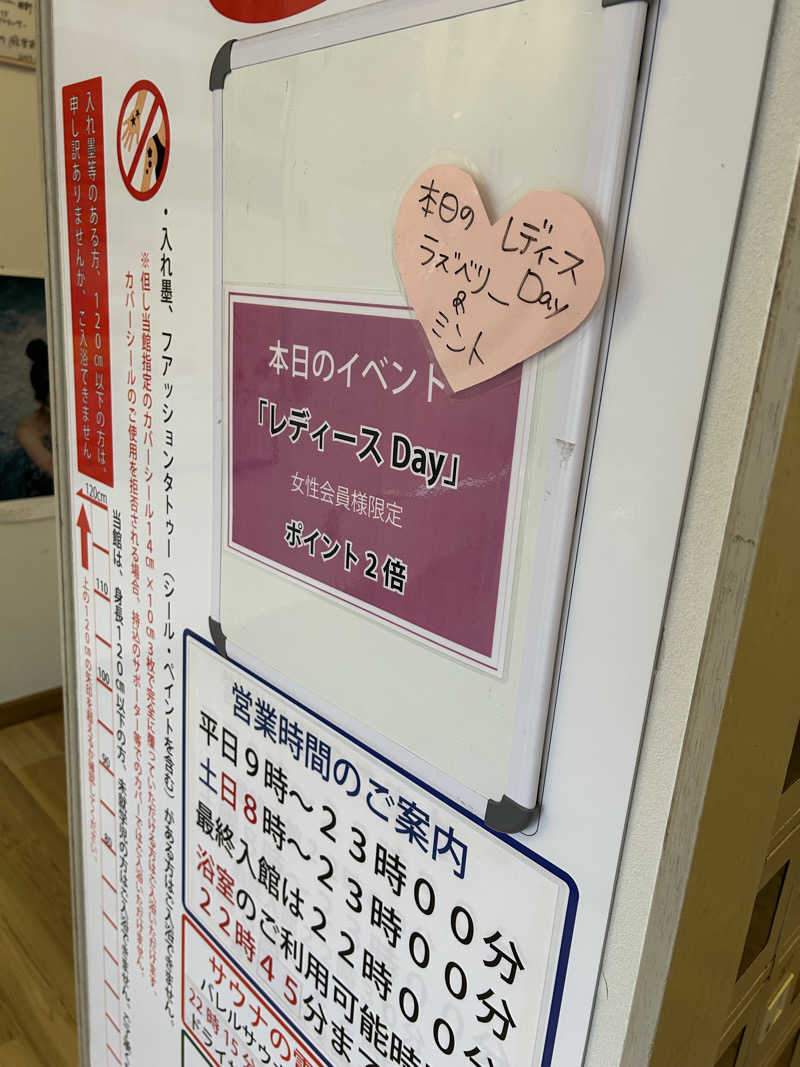 入れ墨等のある方、120㎝以下の方は、
申し訳ありませんが、ご入浴できません
・入れ墨、ファッションタトゥー（シール・ペイントを含む）がある方はご入浴できません。
※但し当館指定のカバーシール14㎝×10㎝3枚で完全に覆っていただける方はご入浴いただけます。
カバーシールのご使用を拒否される場合、持込のサポーター等でのカバーではご入浴いただけません。
120cm
110
100
90
80
当館は、身長120㎝以下の方、
上の120㎝の矢印を超えるか確認してください。
本日の
レディース
Day
ラズベリー
&
ミント
本日のイベント
「レディースDay」
女性会員様限定
ポイント2倍
営業時間のご案内
平日9時～23時00分
土日8時～23時00分
最終入館は22時00分
浴室のご利用可能時間
22時45分まで
サウナの
バレルサウナ
22時15分
ドライ